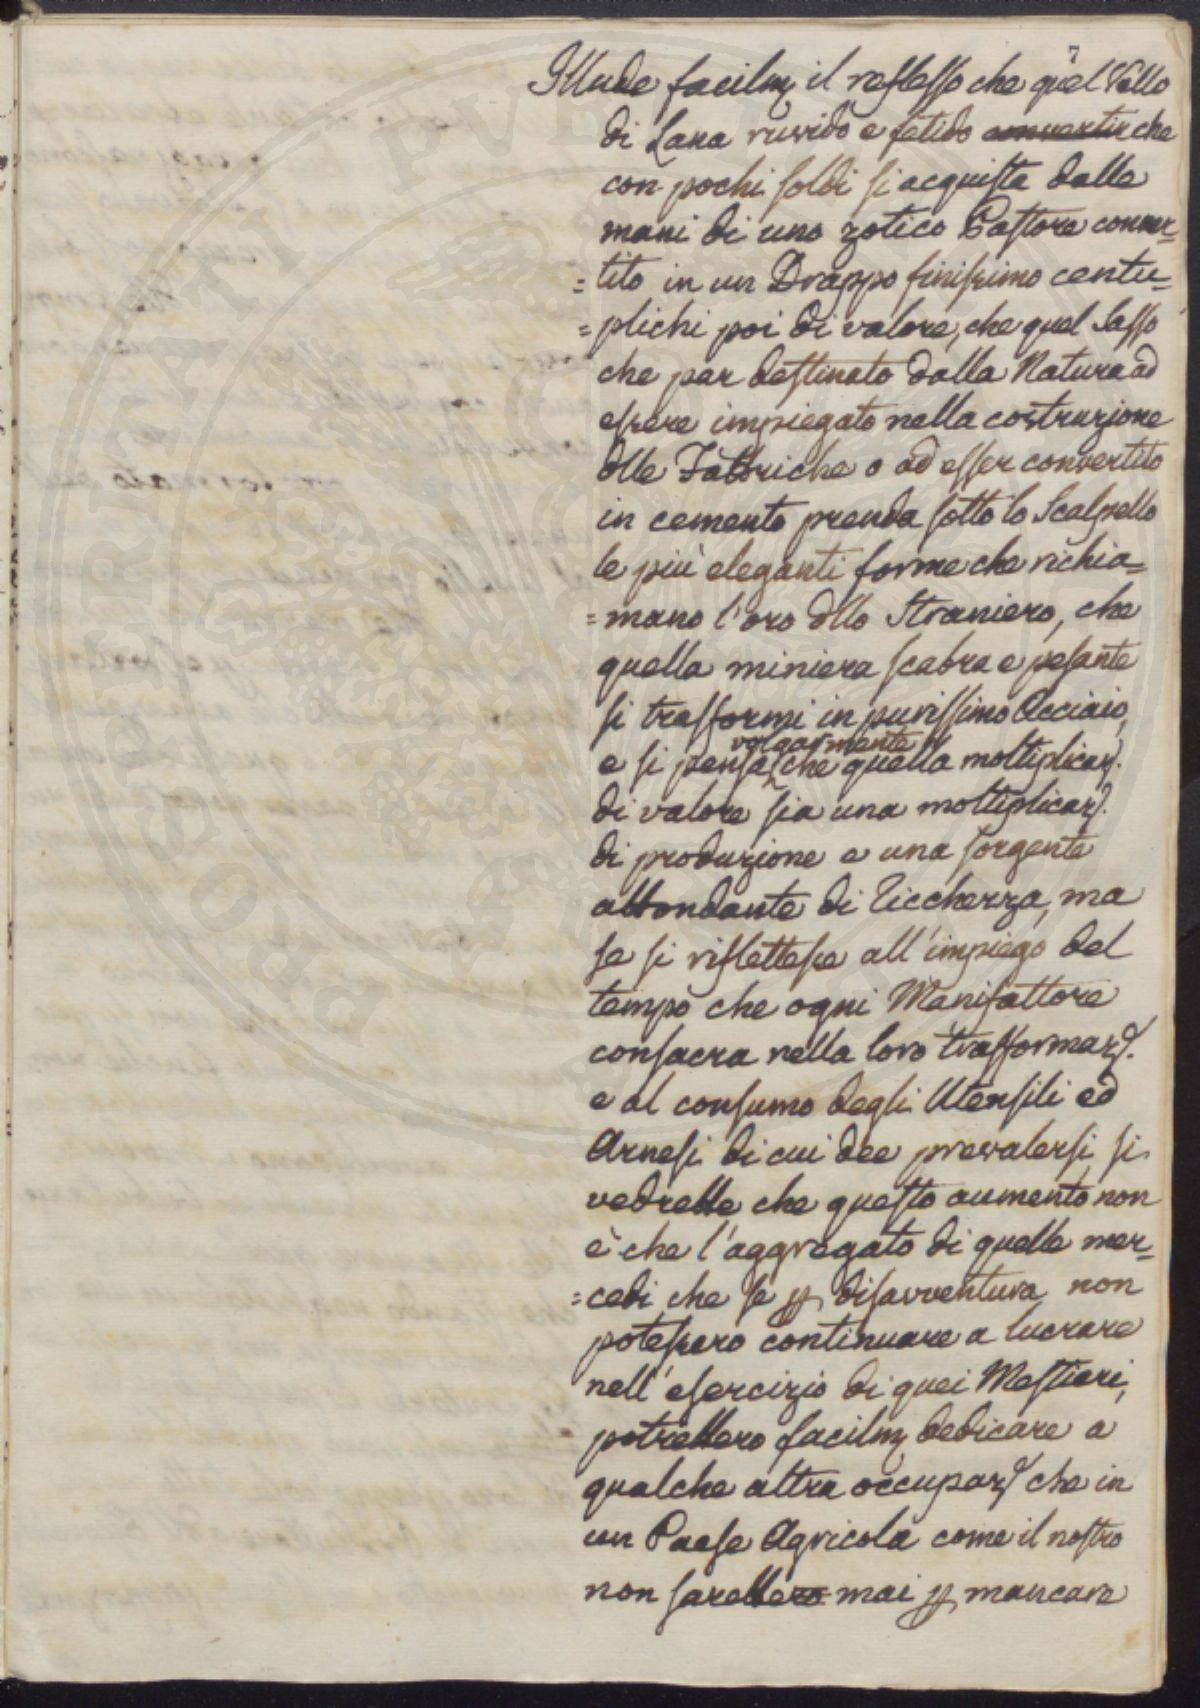 7
Illude facilm. il reflesso che quel Vello
di Lana ruvido e fetido convertir che
con pochi soldi si acquista dalle
mani di uno zotico Pastore conver=
=tito in un Drappo finissimo centu=
=plichi poi di valore, che quel Sasso
che par destinato dalla Natura ad
essere impiegato nella costruzione
dlle Fabbriche o ad esser convertito
in cemento prenda sotto lo Scalpello
le più eleganti forme che richia=
=mano l'oro dllo Straniero, che
quella miniera scabra e pesante
si trasformi in purissimo Acciaio,
volgarmente
e si pensa che quella moltiplicaz.
di valore sia una moltiplicaz.
di produzione e una sorgente
abbondante di Ricchezza, ma
se si riflettesse all'impiego del
tempo che ogni Manifattore
consacra nella loro trasformaz.
e al consumo degli Utensili ed
Arnesi di cui dee prevalersi si
vedrebbe che questo aumento non
è che l'aggregato di quelle mer=
=cedi che se p disavventura non
potessero continuare a lucrare
nell'esercizio di quei Mestieri,
potrebbero facilm. dedicare a
qualche altra occupaz. che in
un Paese Agricola come il nostro
non sarebbero mai p mancare
PVBLICA
PROSPERITATI